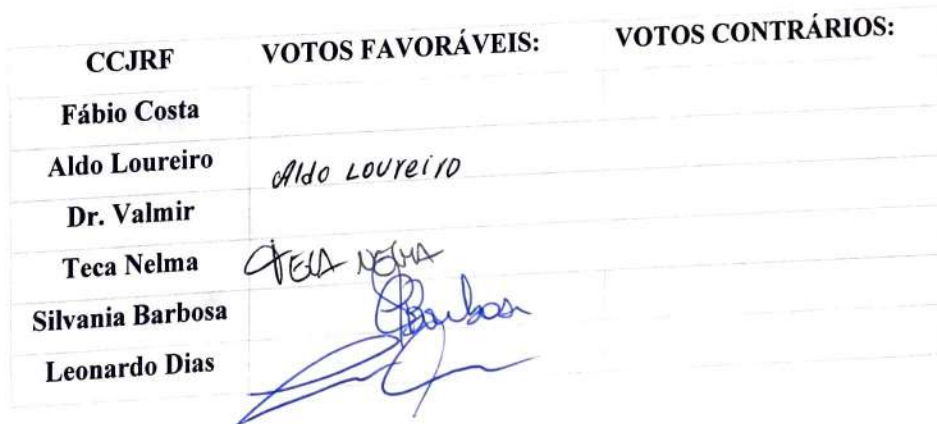 CCJRF VOTOS FAVORÁVEIS: VOTOS CONTRÁRIOS:
Fábio Costa
Aldo Loureiro Aldo Loureiro
Dr. Valmir
Teca Nelma TECA NELMA
Silvania Barbosa SBarbosa
Leonardo Dias